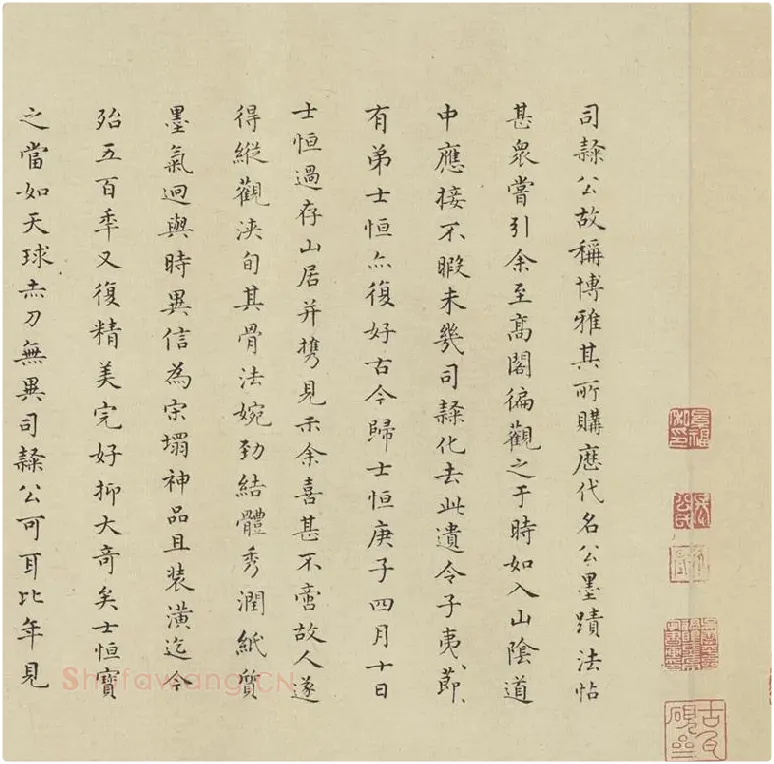 司隸公故稱博雅其所購歷代名公墨蹟法帖
甚衆嘗引余至高閣徧觀之于時如入山陰道
中應接不暇未幾司隸化去此遺令子夷節
有弟士恒亦復好古今歸士恒庚子四月十日
士恒過存山居并攜見示余喜甚不啻故人遂
得縱觀浹旬其骨法婉勁結體秀潤紙質
墨氣迥與時異信為宋搨神品且裝潢迄今
殆五百年又復精美完好抑大奇矣士恒寶
之當如天球赤刀無異司隸公可耳比年見
Shufawang.CN